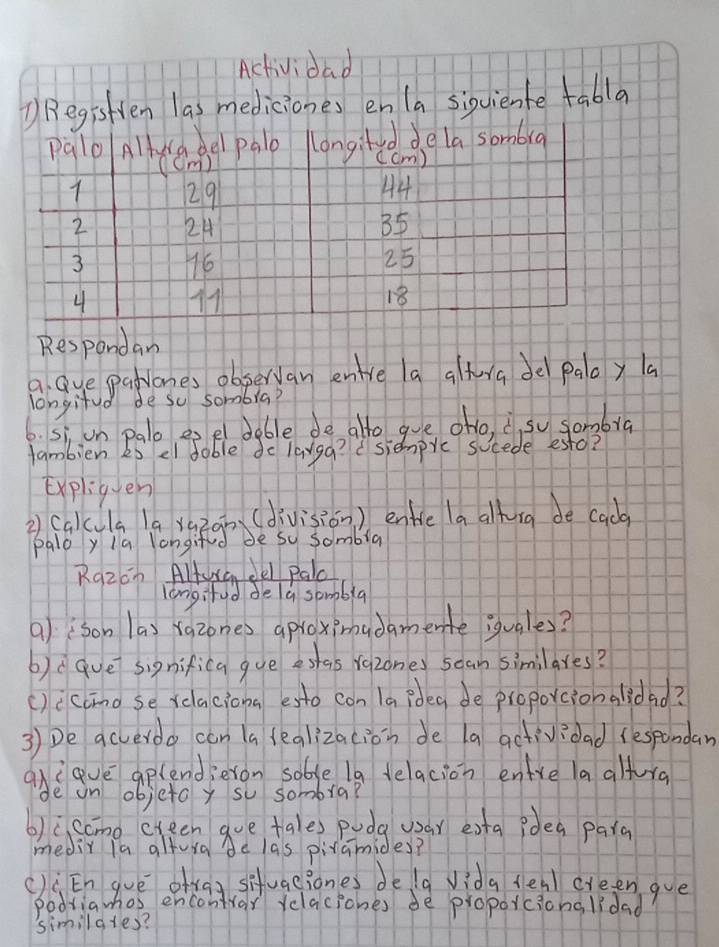 Actividad
1) Registren las mediciones en la siguiente tabla
Palo Altura del palo (cm) longitud de la sombra (cm)
1 29 44
2 24 35
3 16 25
4 11 18
Respondan
a. Que patrones observan entre la altura del palo y la
longitud de su sombra?
b. si un palo es el doble de alto que otro, ¿su sombra
tambien es el doble de larga? ¿siempre sucede esto?
Expliquen
2) Calcula la razón (división) entre la altura de cada
palo y la longitud de su sombra
Razón Altura del Palo
longitud de la sombra
a) ¿son las razones aproximadamente iguales?
b) ¿qué significa que estas razones sean similares?
c) ¿cómo se relaciona esto con la idea de proporcionalidad?
3) De acuerdo con la realización de la actividad respondan
a) ¿qué aprendieron sobre la relación entre la altura
de un objeto y su sombra?
b) ¿Cómo creen que tales pudo usar esta idea para
medir la altura de las pirámides?
c) ¿En qué otras situaciones de la vida real creen que
podriamos encontrar relaciones de proporcionalidad
similares?